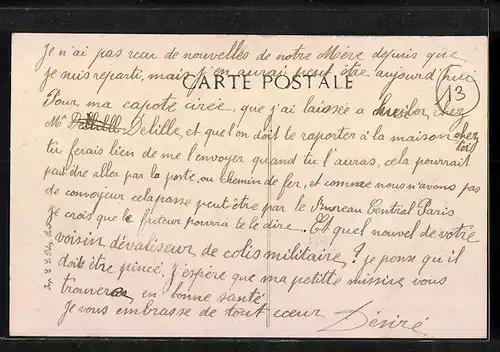 Je n'ai pas recu de nouvelles de notre Mère depuis que
je suis reparti, mais j'en aurai peut être aujourd'hui
CARTE POSTALE
13
Pour ma capote cirée, que j'ai laissée a chez
Mr Delille, et quel on doit te raporter à la maison chez toi
tu ferais bien de me l'envoyer quand tu l'auras, cela pourrait
peut être aller par la poste, ou chemin de fer, et comme nous n'avons pas
de convoyeur cela passe peut être par le Bureau Central Paris
Je crois que le facteur pourra te le dire. Et quel nouvel de votre
voisin dévaliseur de colis militaire? je pense qu'il
doit être pincé. j'espère que ma petitte missive vous
trouvera en bonne santé
Je vous embrasse de tout cœur
Désiré